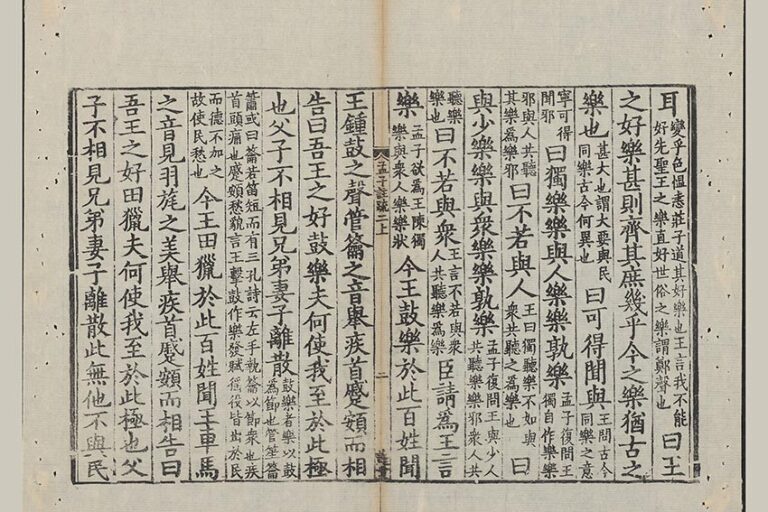 耳變乎色愠恚莊子道其好樂也王言我不能好先聖王之樂直好世俗之樂謂鄭聲也曰王
之好樂甚則齊其庶幾乎今之樂猶古之
樂也甚大也謂大要與民同樂古今何異也曰可得聞與王問古今同樂之意
寧可得聞邪曰獨樂樂與人樂樂孰樂孟子復問王獨自作樂樂
邪與人共聽其樂爲樂邪曰不若與人王曰獨聽樂不如與衆共聽之爲樂也曰
與少樂樂與衆樂樂孰樂孟子復問王與少人共聽樂樂邪衆人共
聽樂樂也曰不若與衆王言不若與衆人共聽樂爲樂臣請爲王言
樂孟子欲爲王陳獨樂與衆人樂樂狀今王鼓樂於此百姓聞
孟子註疏二上
二
王鍾鼓之聲管籥之音舉疾首蹙頞而相
告曰吾王之好鼓樂夫何使我至於此極
也父子不相見兄弟妻子離散鼓樂者樂以鼓爲節也管笙籥
簫或曰籥若笛短而有三孔詩云左手執籥以節衆也疾首頭痛也蹙頞愁貌言王擊鼓作樂發賦徭役皆出於民
而德不加之故使民愁也今王田獵於此百姓聞王車馬
之音見羽旄之美舉疾首蹙頞而相告曰
吾王之好田獵夫何使我至於此極也父
子不相見兄弟妻子離散此無他不與民